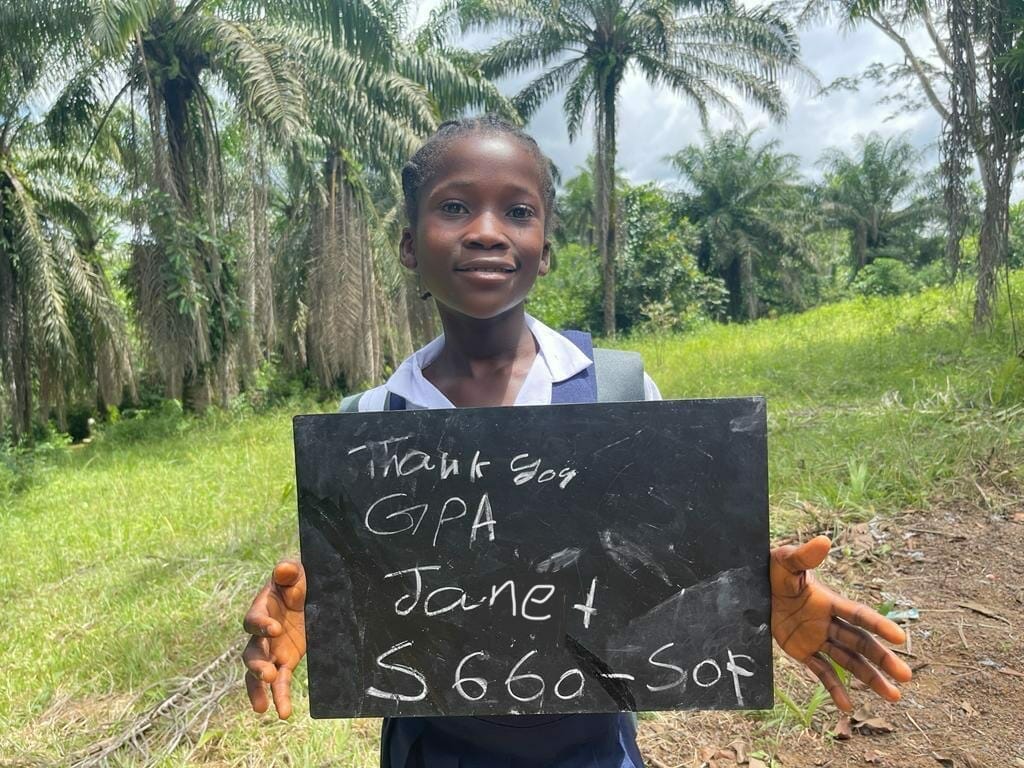 Thank you
GPA
Janet
S660-